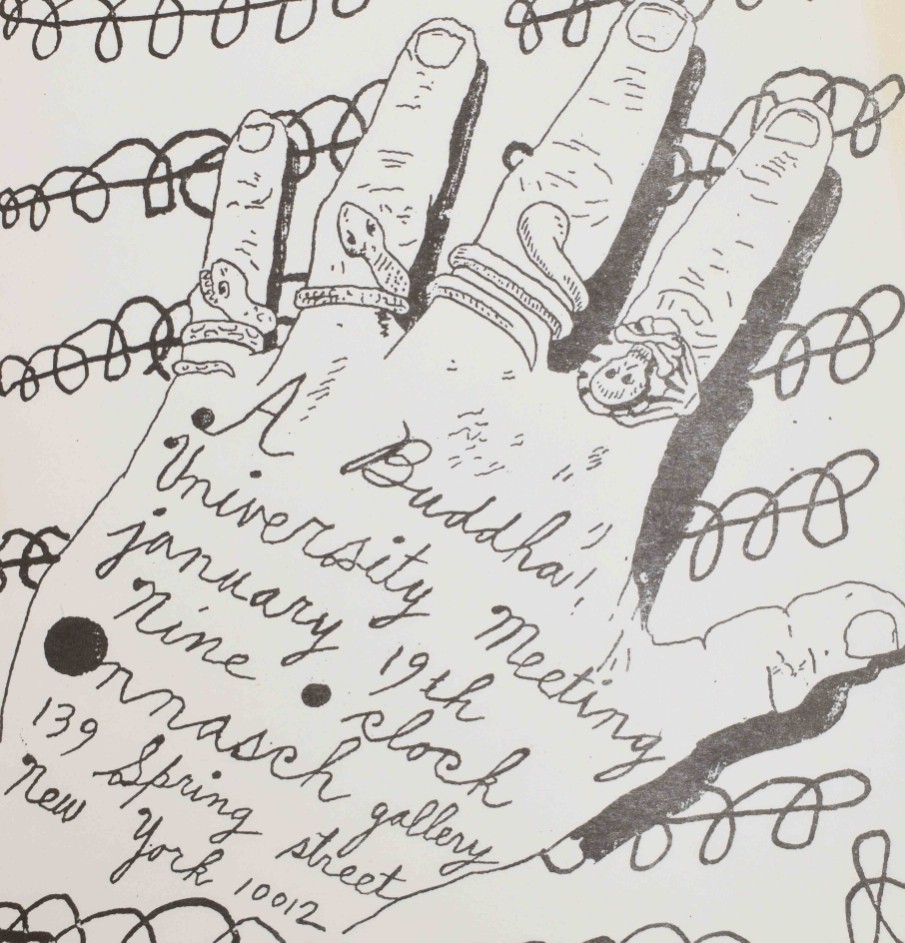 A Buddha
University Meeting
january 19th
Nine ● clock
●nnasch gallery
139 Spring street
New York 10012